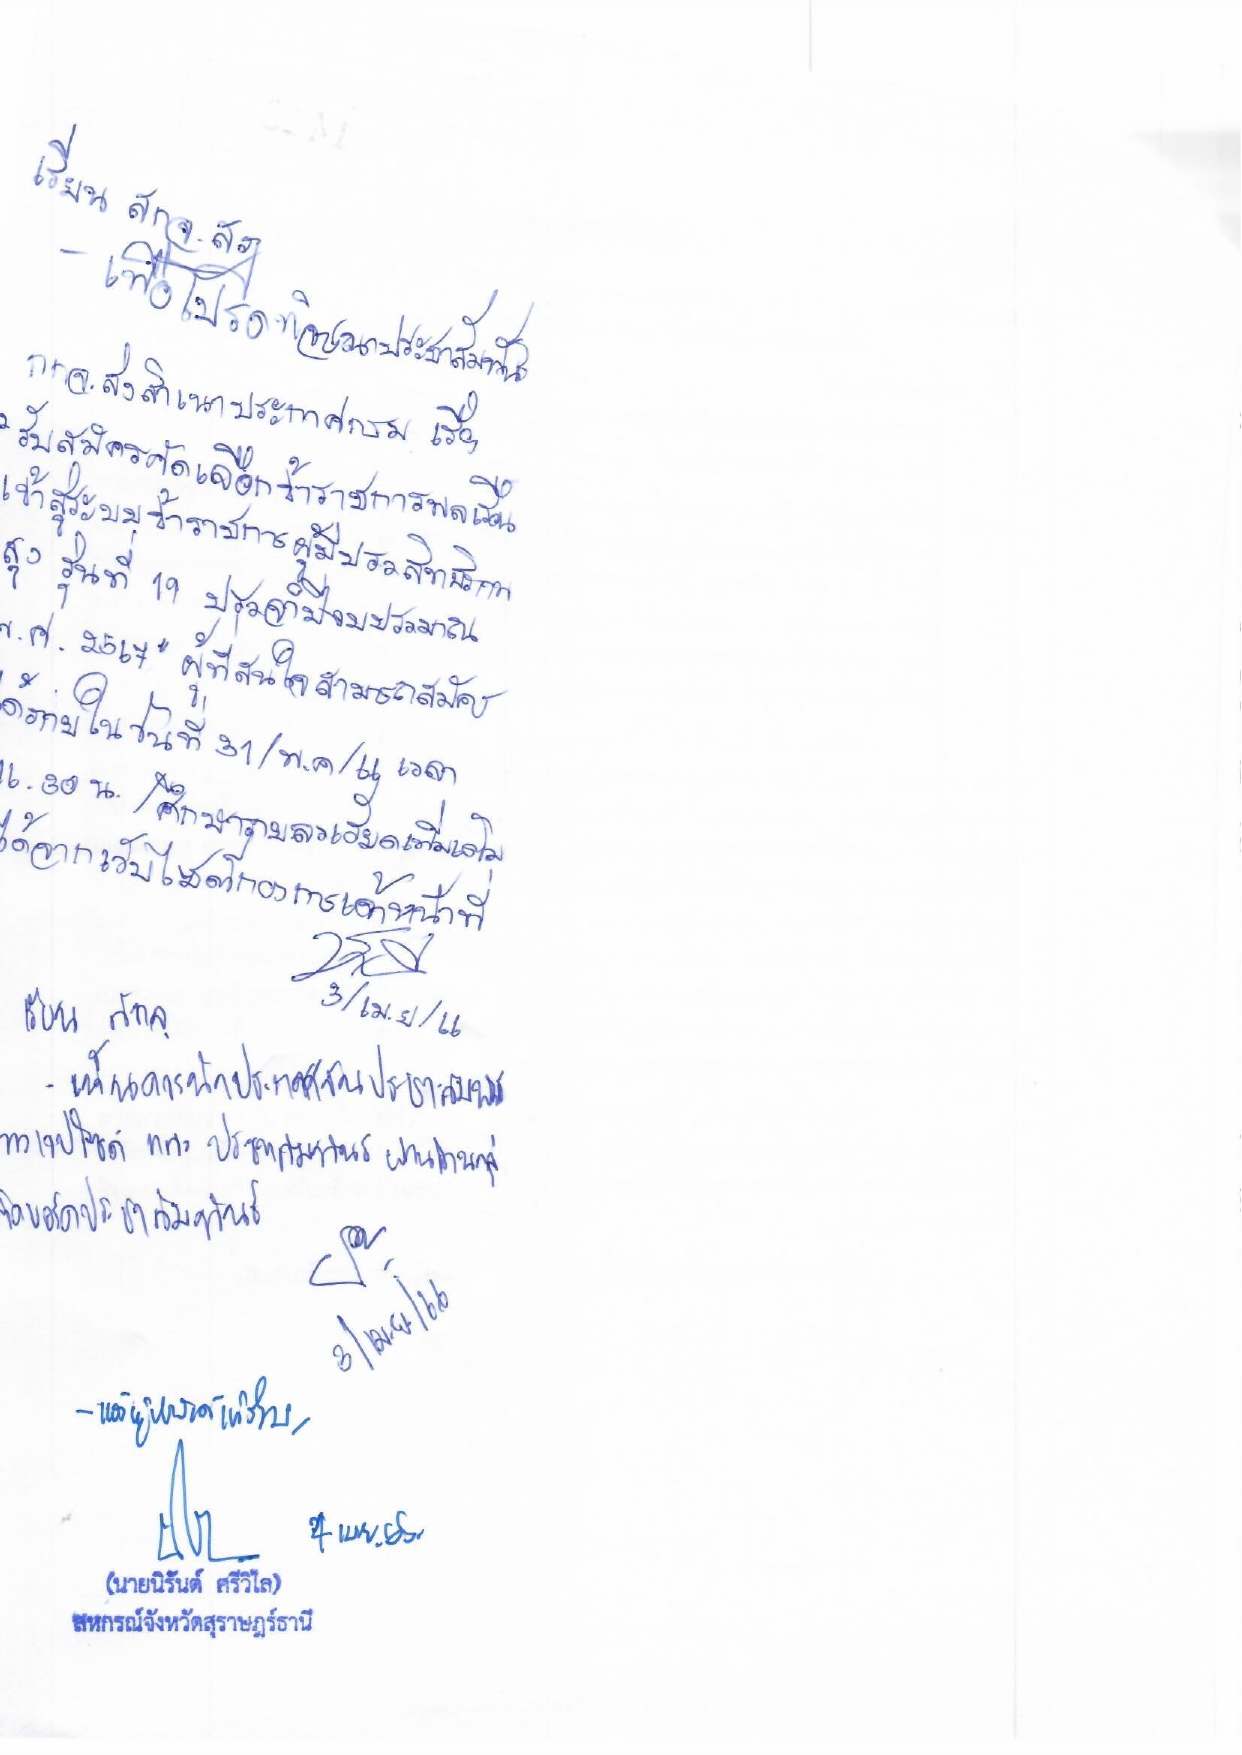 เรียน สกจ.สฎ
- เพื่อโปรดพิจารณาประชาสัมพันธ์
กกจ.ส่งสำเนาประกาศกรม เรื่อง
"รับสมัครคัดเลือกข้าราชการพลเรือน
เข้าสู่ระบบข้าราชการผู้มีผลสัมฤทธิ์
สูง รุ่นที่ 19 ประจำปีงบประมาณ
พ.ศ. 2567" ผู้ที่สนใจสามารถสมัคร
ได้ภายในวันที่ 31/พ.ค/ เวลา
.30 น. /ศึกษารายละเอียดเพิ่มเติม
ได้จากเว็บไซต์กองการเจ้าหน้าที่
3/เม.ย/
เรียน
- เห็นควรนำประกาศขึ้นประชาสัมพันธ์
ทางเว็บไซต์ และ ประชาสัมพันธ์ ผ่าน
ติดบอร์ดประชาสัมพันธ์
3/เม.ย/
4 เม.ย.
(นายนิรันต์ ศรีวิไล)
สหกรณ์จังหวัดสุราษฎร์ธานี